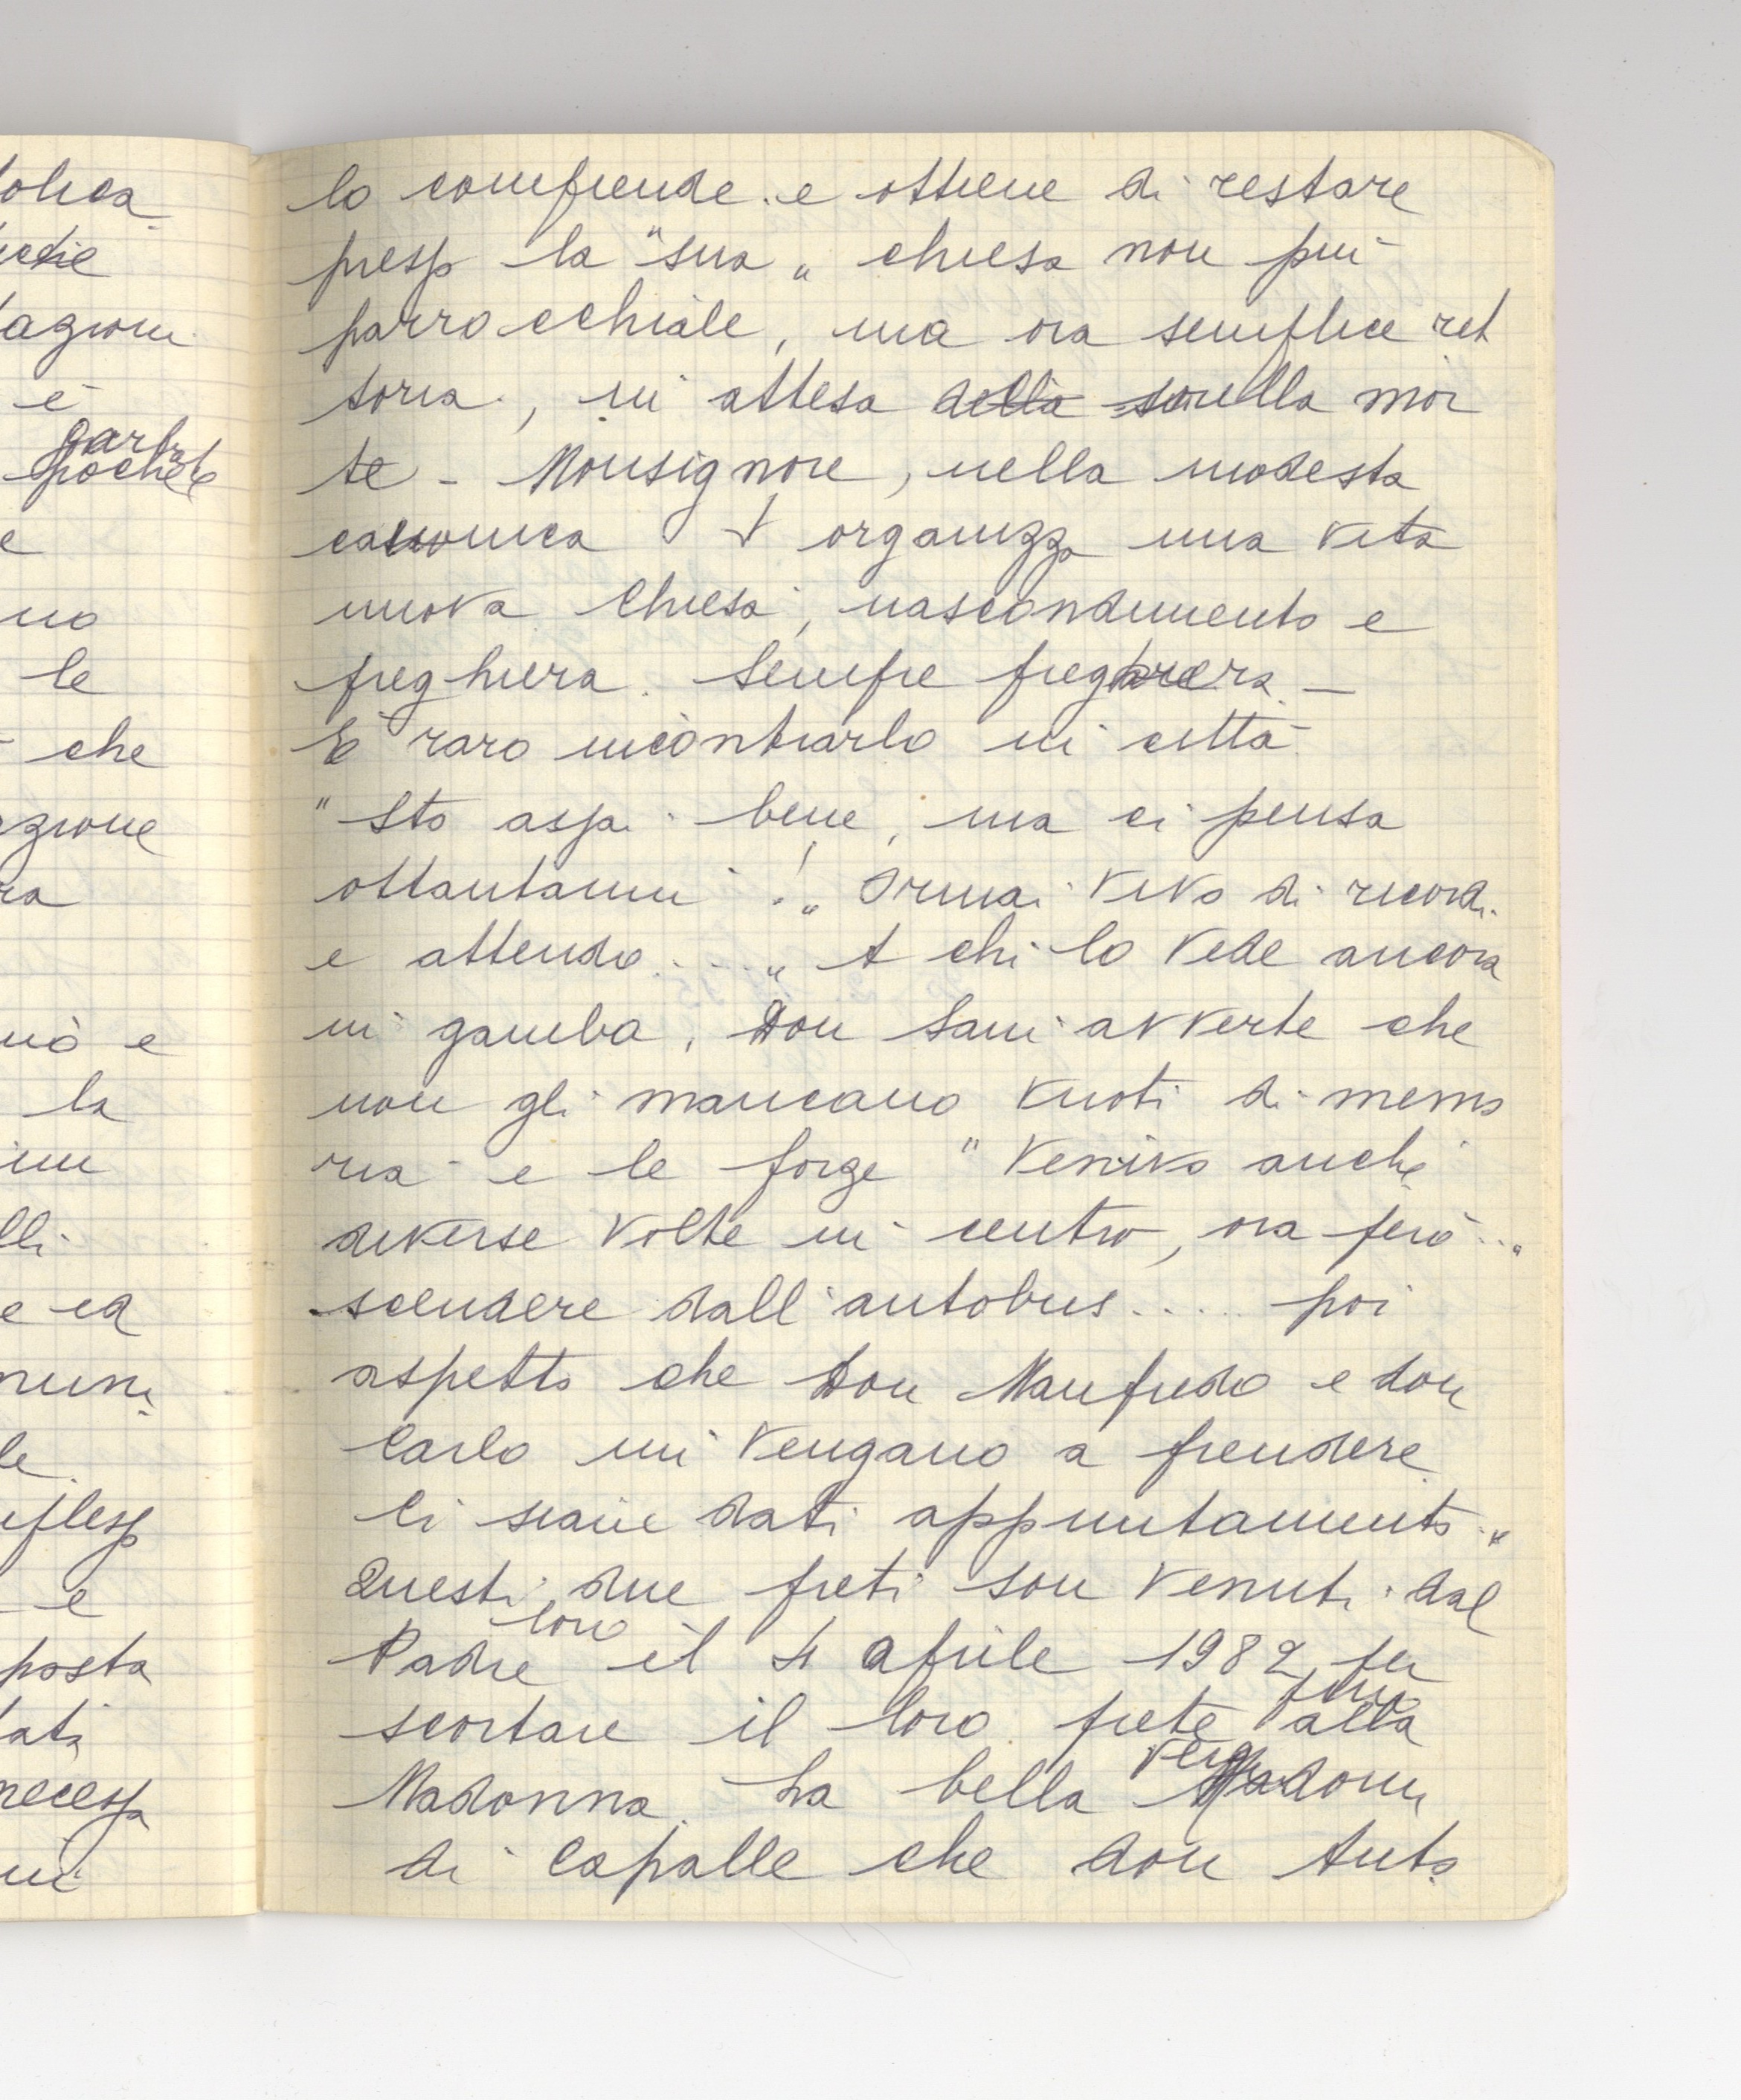 tolica
lo comprende e ottiene di restare
presso la "sua" chiesa non più
tazioni
parrocchiale, ma ora semplice ret
è
toria, in attesa della sorella mor
garbate
poche
te - Monsignore, nella modesta
e
canonica organizza una vita
no
nuova chiesa, nascondimento e
le
preghiera. Sempre preghiera -
che
È raro incontrarlo in città
azione
"Sto assai bene, ma ci pensa
ra
ottantanni!" Ormai vivo di ricordi
e attendo...." A chi lo vede ancora
in gamba, Don Sani avverte che
la
non gli mancano vuoti di memo
ria e le forze "Venivo anche
lli
diverse volte in centro, ora però..."
e ed
scendere dall'autobus..... poi
aspetto che Don Manfredo e don
le
Carlo mi vengano a prendere
Ci siamo dati appuntamento."
e
Questi due preti son venuti dal
loro
posta
Padre il 4 aprile 1982, per
dati
scortare il loro prete alla
necessa
Vergine
Madonna. La bella Madonna
di Capalle che don Anto